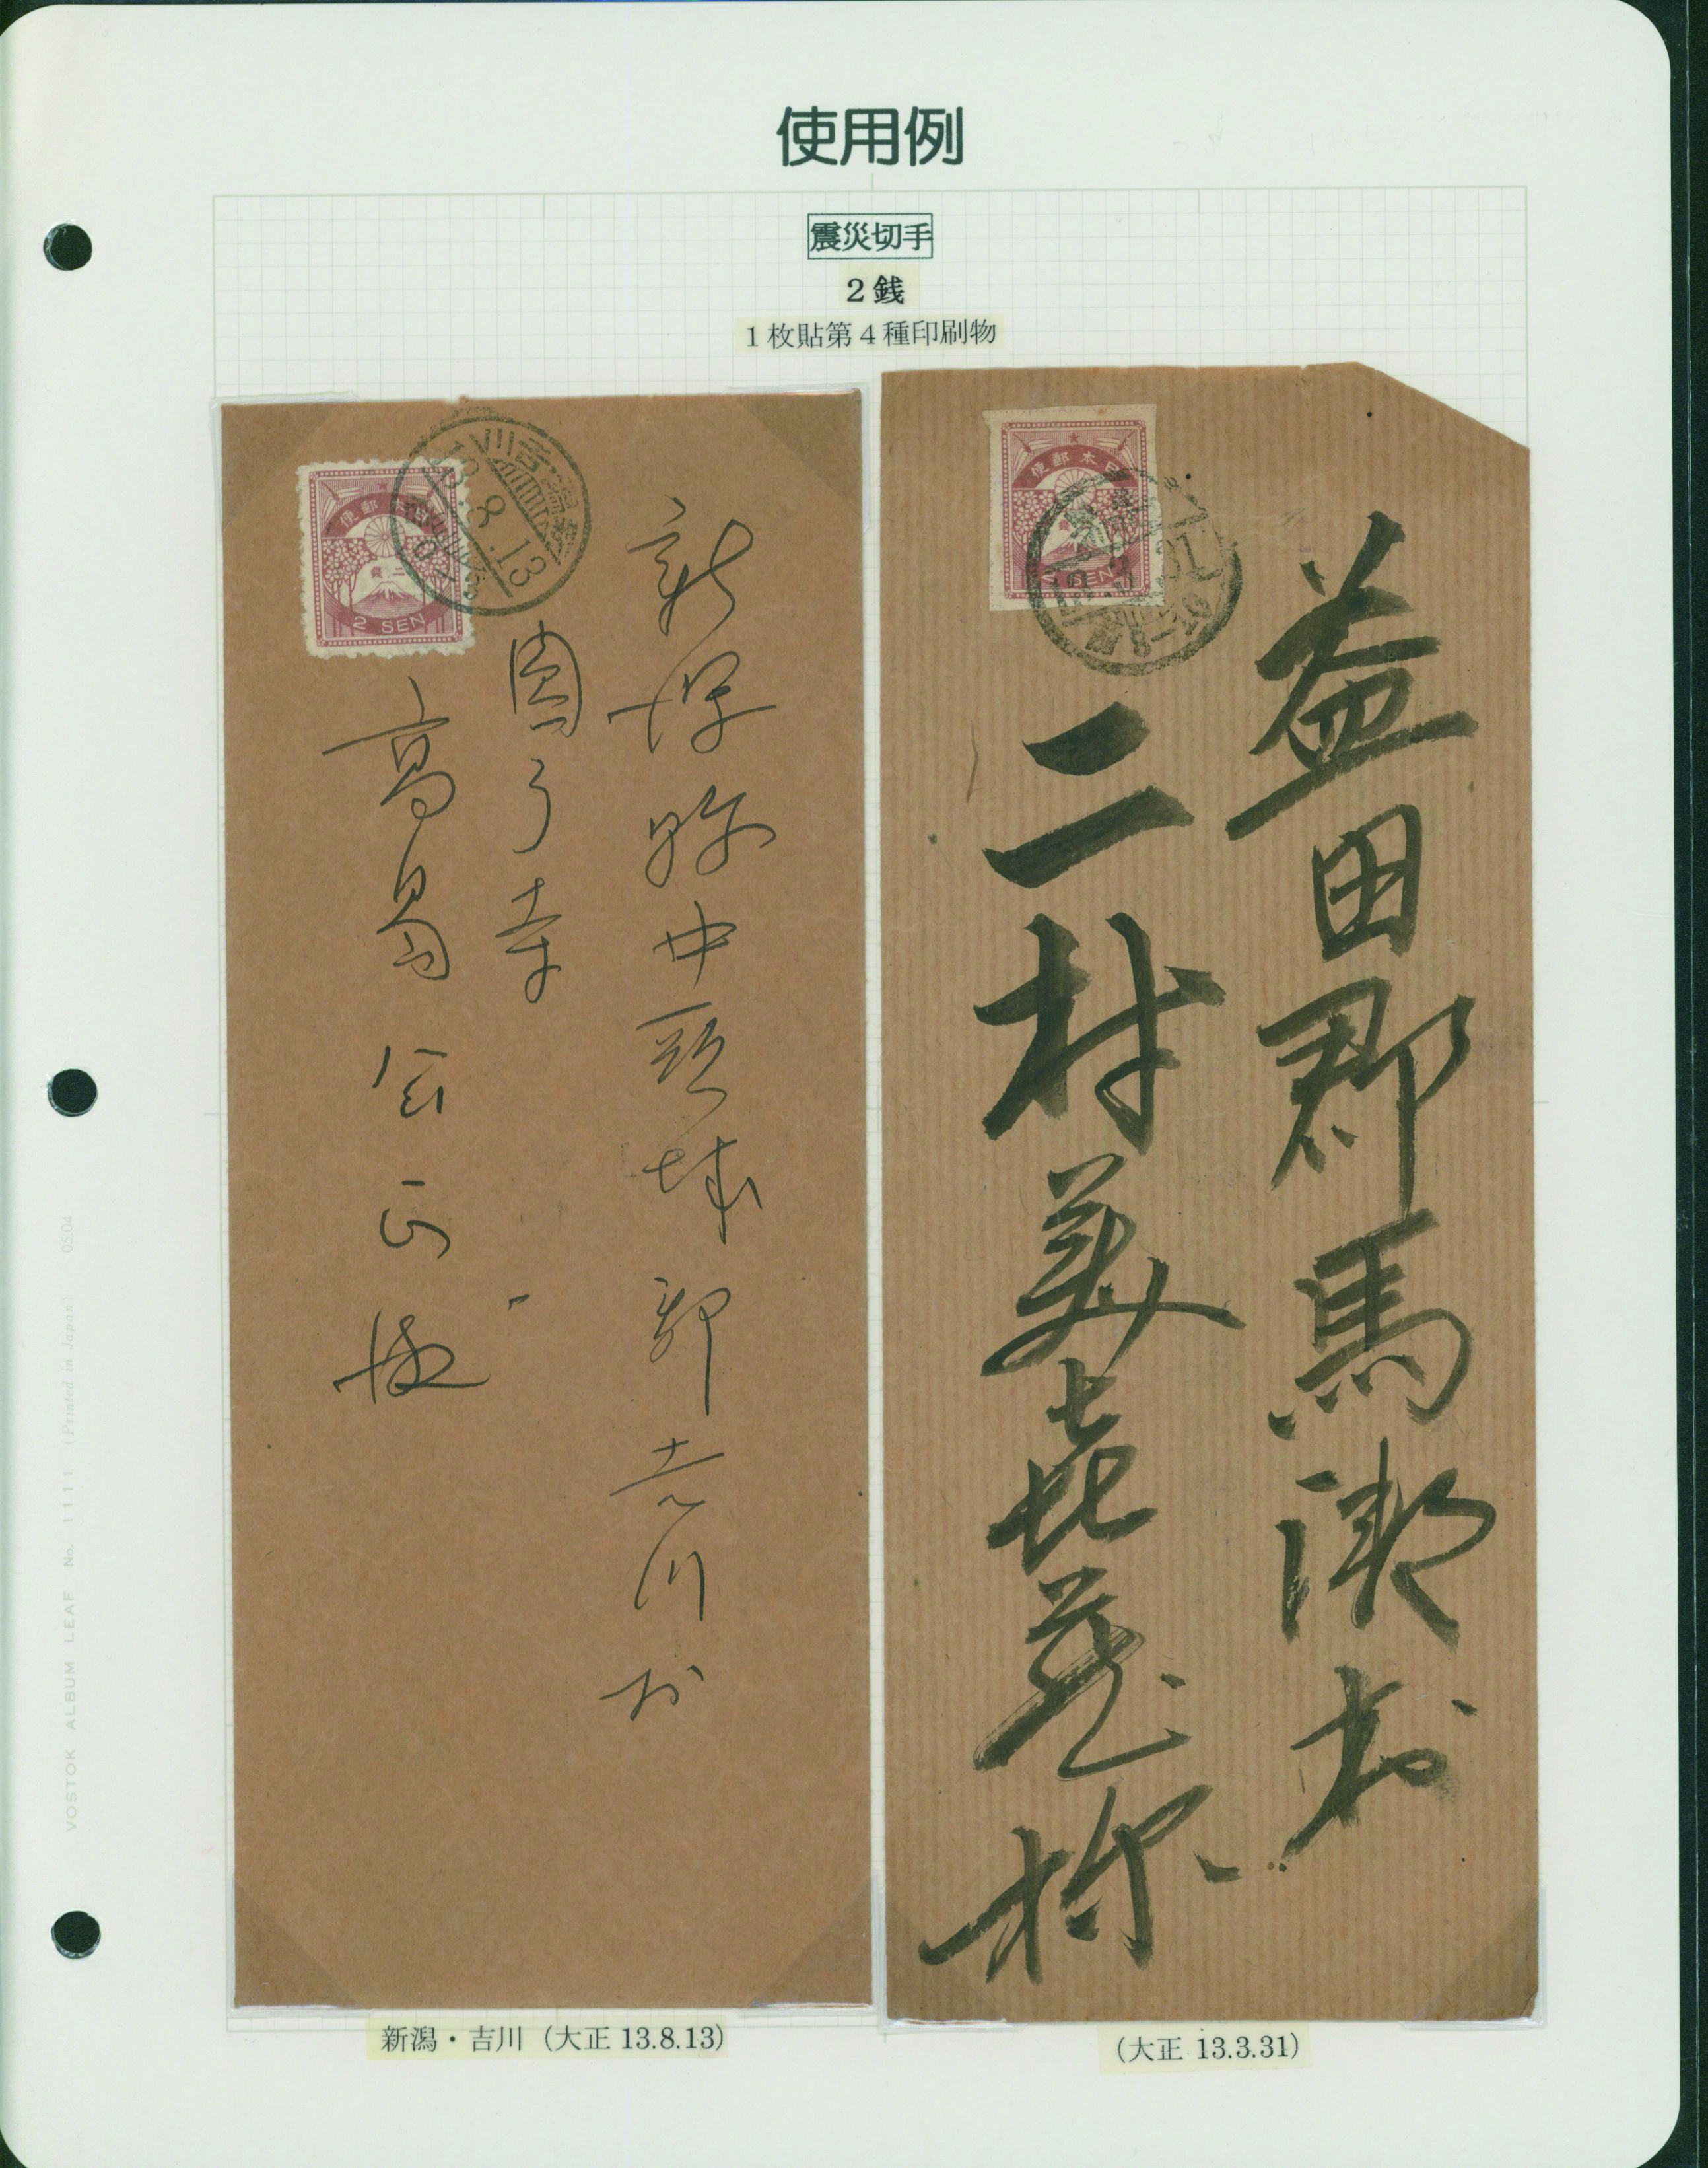 使用例
震災切手
2銭
1枚貼第4種印刷物
便郵
二
2 SEN
13.8.13
便郵本日
SEN
益田郡馬瀬村
二村美喜蔵様
中頸城郡吉川村
高
新潟・吉川（大正 13.8.13）
（大正 13.3.31）
VOSTOK ALBUM LEAF No. 1111 (Printed in Japan) 0504